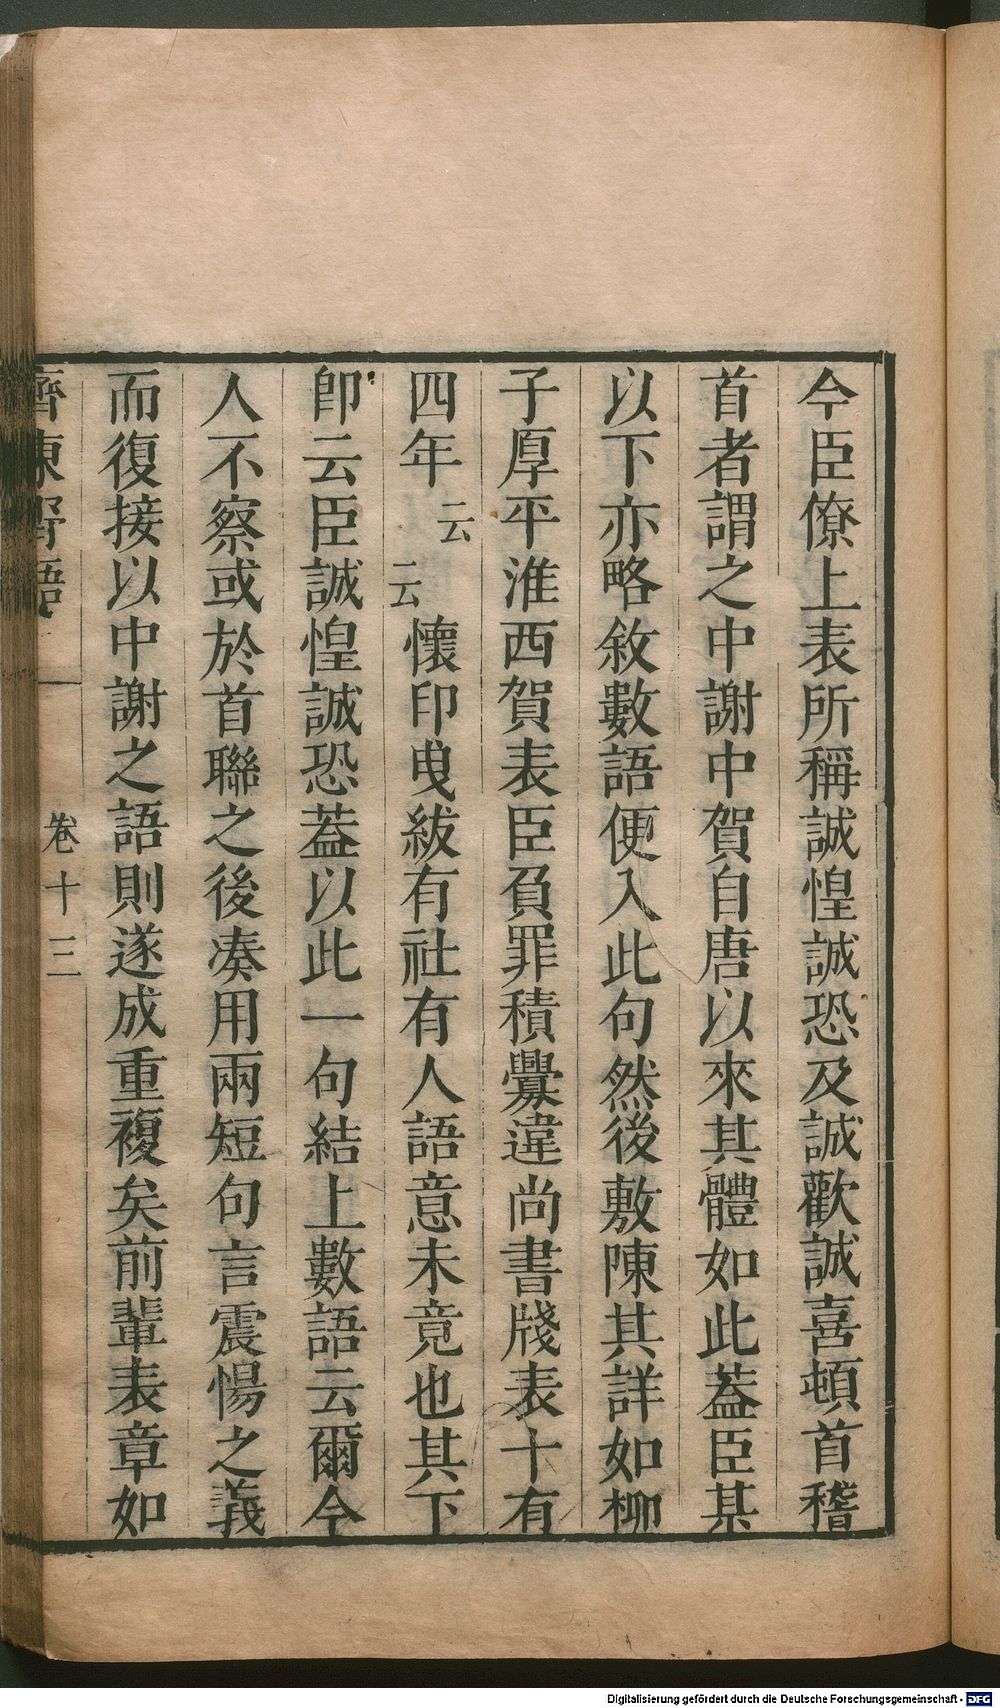 今臣僚上表所稱誠惶誠恐及誠歡誠喜頓首稽
首者謂之中謝中賀自唐以來其體如此蓋臣某
以下亦略敘數語便入此句然後敷陳其詳如柳
子厚平淮西賀表臣負罪積釁違尚書牋表十有
四年云云懷印曳紱有社有人語意未竟也其下
卽云臣誠惶誠恐蓋以此一句結上數語云爾今
人不察或於首聯之後凑用兩短句言震惕之義
而復接以中謝之語則遂成重複矣前輩表章如
齊東野語
卷十三
Digitalisierung gefördert durch die Deutsche Forschungsgemeinschaft - DFG